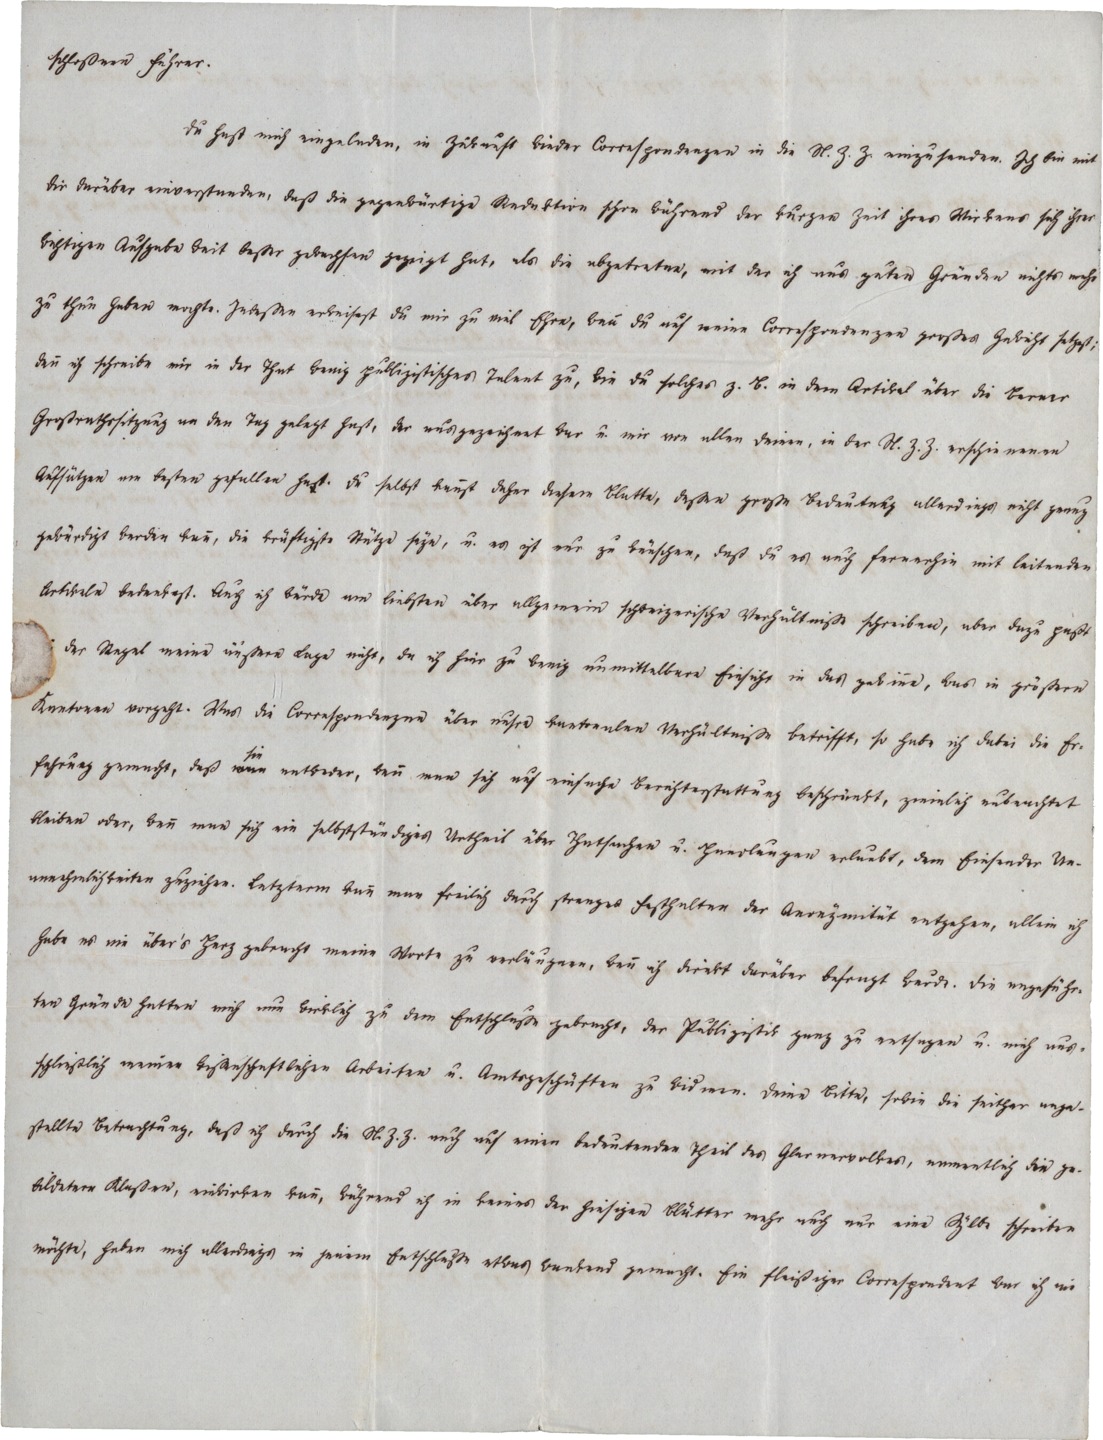 schloßnen Führer.
Du hast mich eingeladen, in Zukunft wieder Correspondenzen in die N. Z. Z. einzusenden. Ich bin mit
dir darüber einverstanden, daß die gegenwärtige Redaktion schon während der kurzen Zeit ihres Wirkens sich ihrer
wichtigen Aufgabe weit besser gewachsen gezeigt hat, als die abgetretne, mit der ich aus guten Gründen nichts mehr
zu thun haben mochte. Indessen erweisest du mir zu viel Ehre, wenn du auf meine Correspondenzen großes Gewicht setzest;
denn ich schreibe mir in der That wenig publizistisches Talent zu, wie du solches z. B. in dem Artikel über die Berner
Großrathssitzung an den Tag gelegt hast, der ausgezeichnet war u. mir von allen deinen, in der N. Z. Z. erschienenen
Aufsätzen am besten gefallen hat. Du selbst kannst daher diesem Blatte, dessen große Bedeutung allerdings nicht genug
gewürdigt werden kann, die kräftigste Stütze seyn, u. es ist nur zu wünschen, daß du es auch fernerhin mit leitenden
Artikeln bedenkest. Auch ich würde am liebsten über allgemein schweizerische Verhältnisse schreiben, aber dazu paßt
der Regel meine äußere Lage nicht, da ich hier zu wenig unmittelbare Einsicht in das gewinne, was in größern
Kantonen vorgeht. Was die Correspondenzen über unsre kantonalen Verhältnisse betrifft, so habe ich dabei die Er-
fahrung gemacht, daß sie entweder, wenn man sich auf einfache Berichterstattung beschränkt, ziemlich unbeachtet
bleiben oder, wenn man sich ein selbstständiges Urtheil über Thatsachen u. Handlungen erlaubt, dem Einsender Un-
annehmlichkeiten zuziehen. Letzterm kann man freilich durch strenges Festhalten der Anonymität entgehen, allein ich
habe es nie über's Herz gebracht meine Worte zu verläugnen, wenn ich direkt darüber befragt wurde. Die angeführ-
ten Gründe hatten mich nun wirklich zu dem Entschlusse gebracht, der Publizistik ganz zu entsagen u. mich aus-
schließlich meinen wissenschaftlichen Arbeiten u. Amtsgeschäften zu widmen. Deine Bitte, sowie die seither ange-
stellte Betrachtung, daß ich durch die N. Z. Z. auch auf einen bedeutenden Theil des Glarnervolkes, namentlich die ge-
bildetern Klassen, einwirken kann, während ich in keines der hiesigen Blätter mehr auch nur eine Sylbe schreiben
möchte, haben mich allerdings in jenem Entschlusse etwas wankend gemacht. Ein fleißiger Correspondent war ich nie